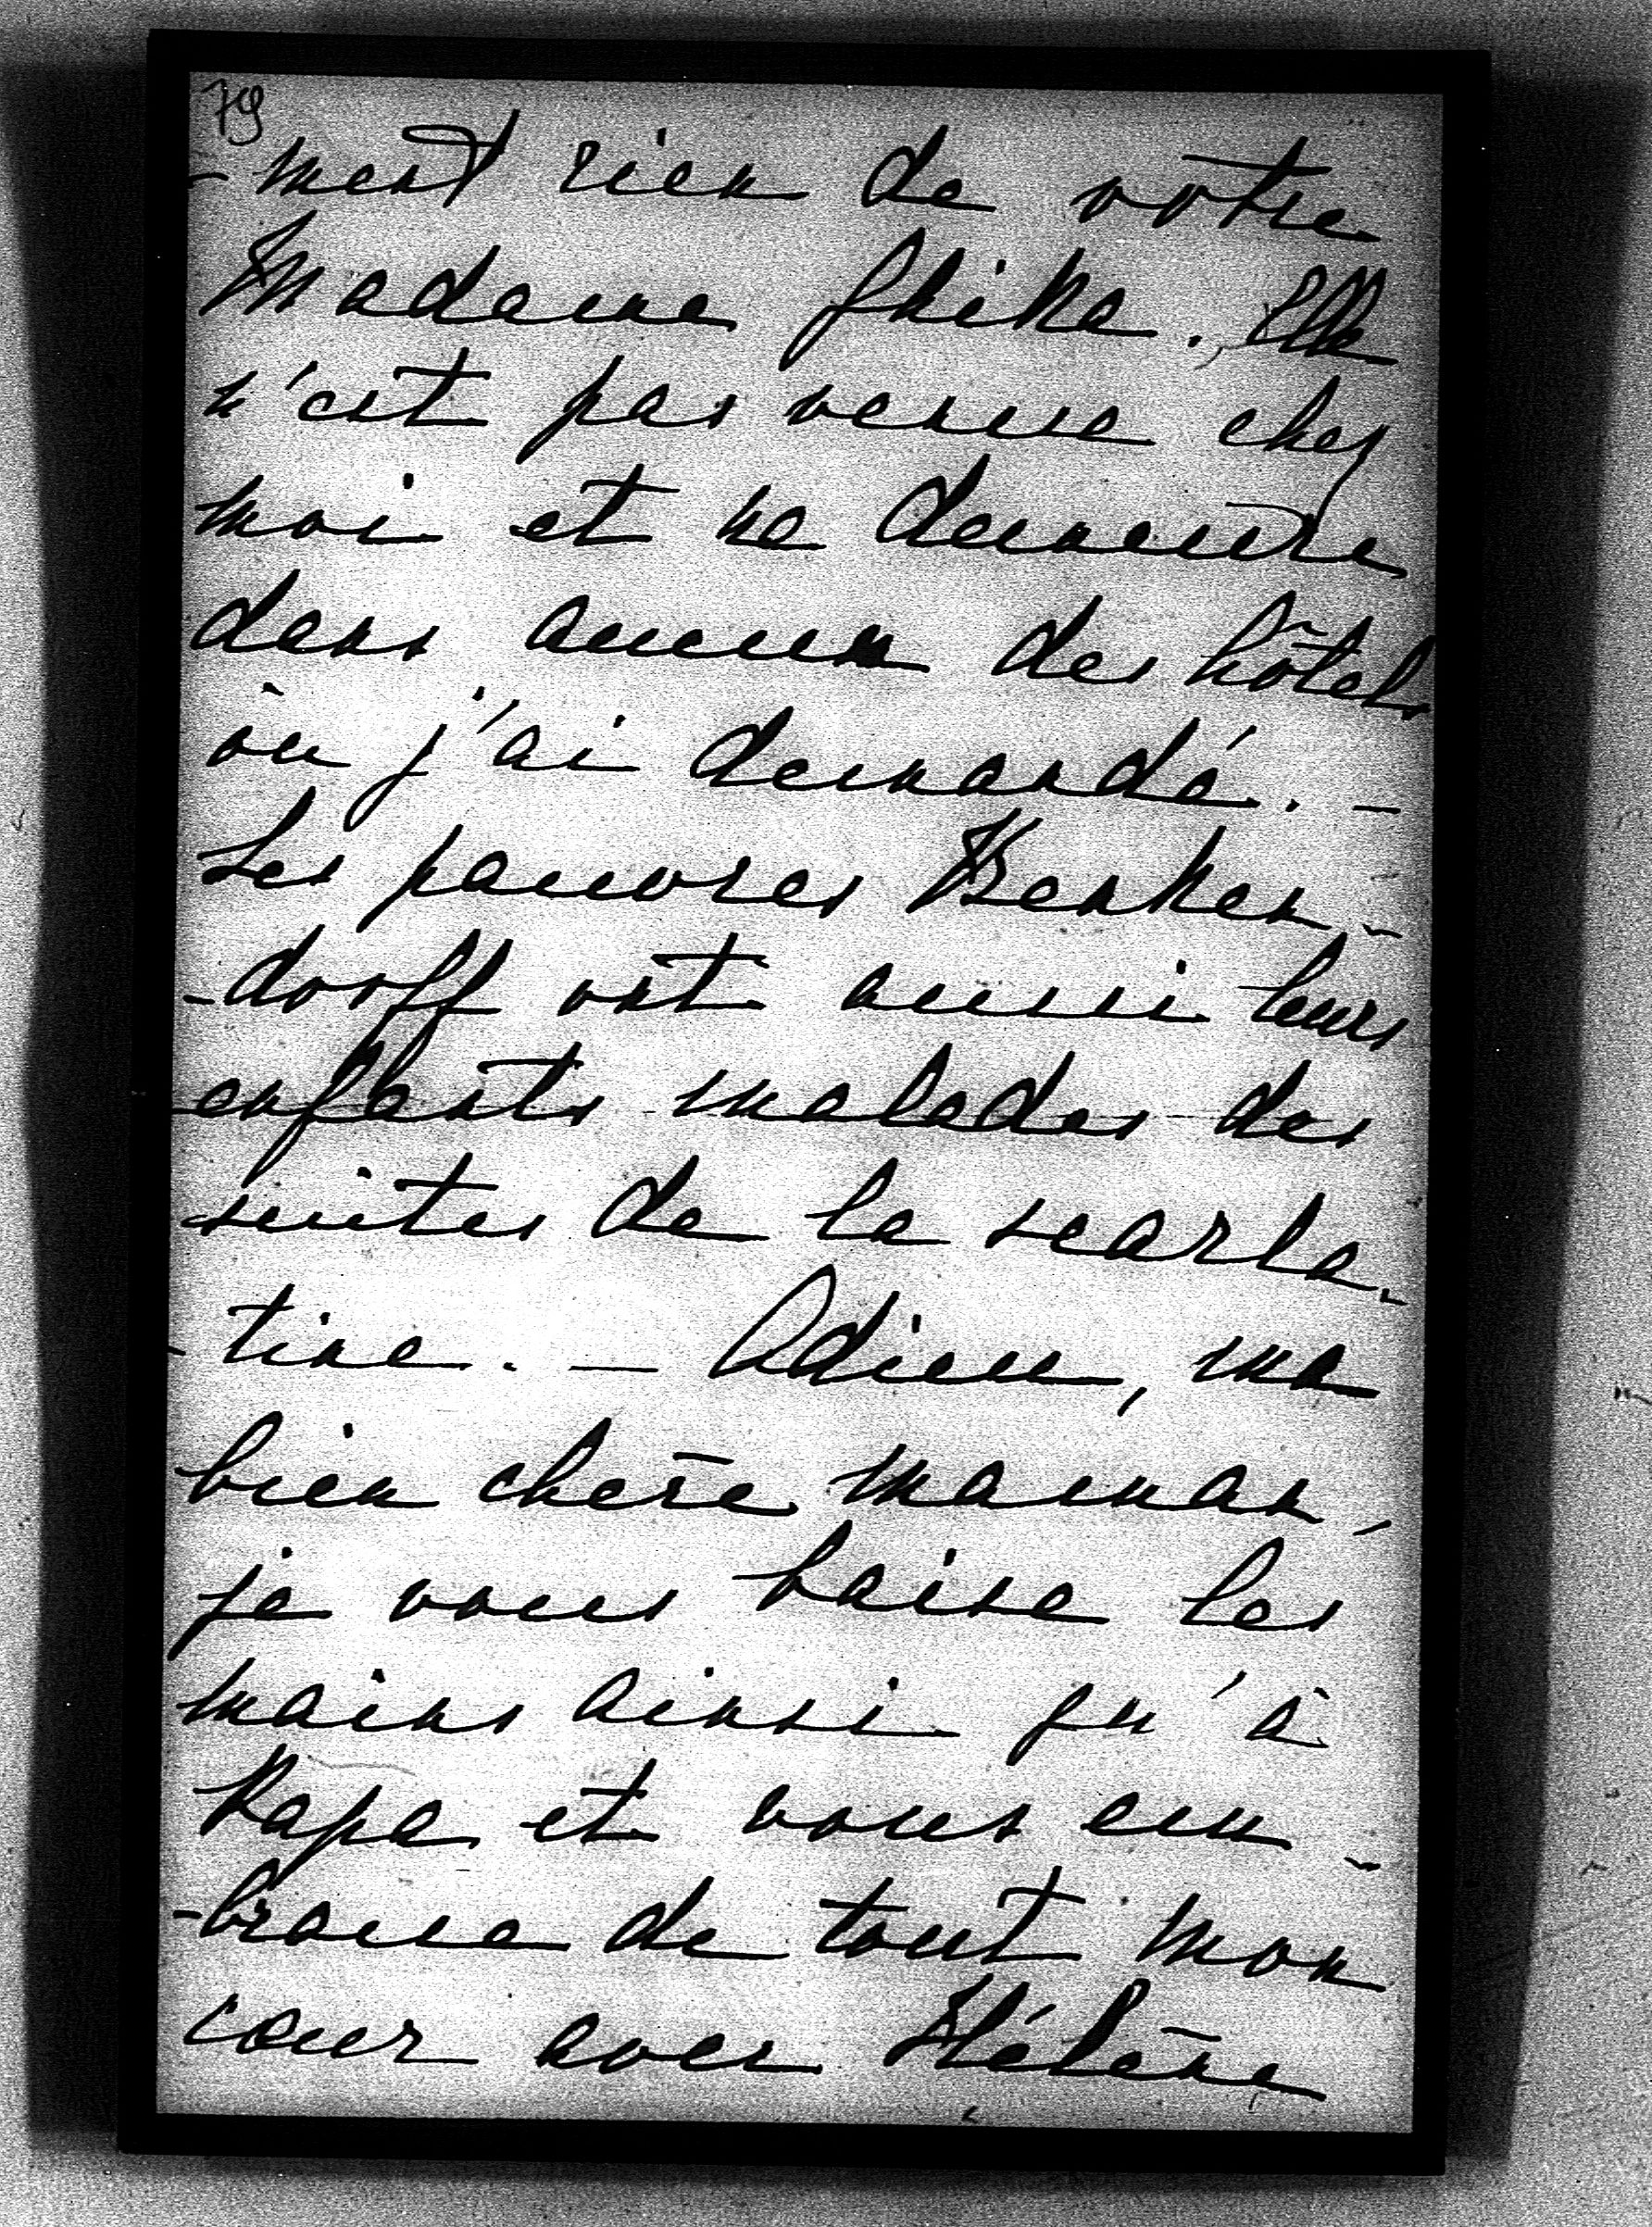 79
-ment rien de votre
Madame Ghika. Elle
n'est pas venue chez
moi et ne demeure
dans aucun des hôtels
où j'ai demandé. —
Les pauvres Benken-
-dorff ont aussi leurs
enfants malades des
suites de la scarla-
-tine. — Adieu, ma
bien chère maman,
je vous baise les
mains ainsi qu'à
Papa et vous em-
-brasse de tout mon
cœur avec Hélène